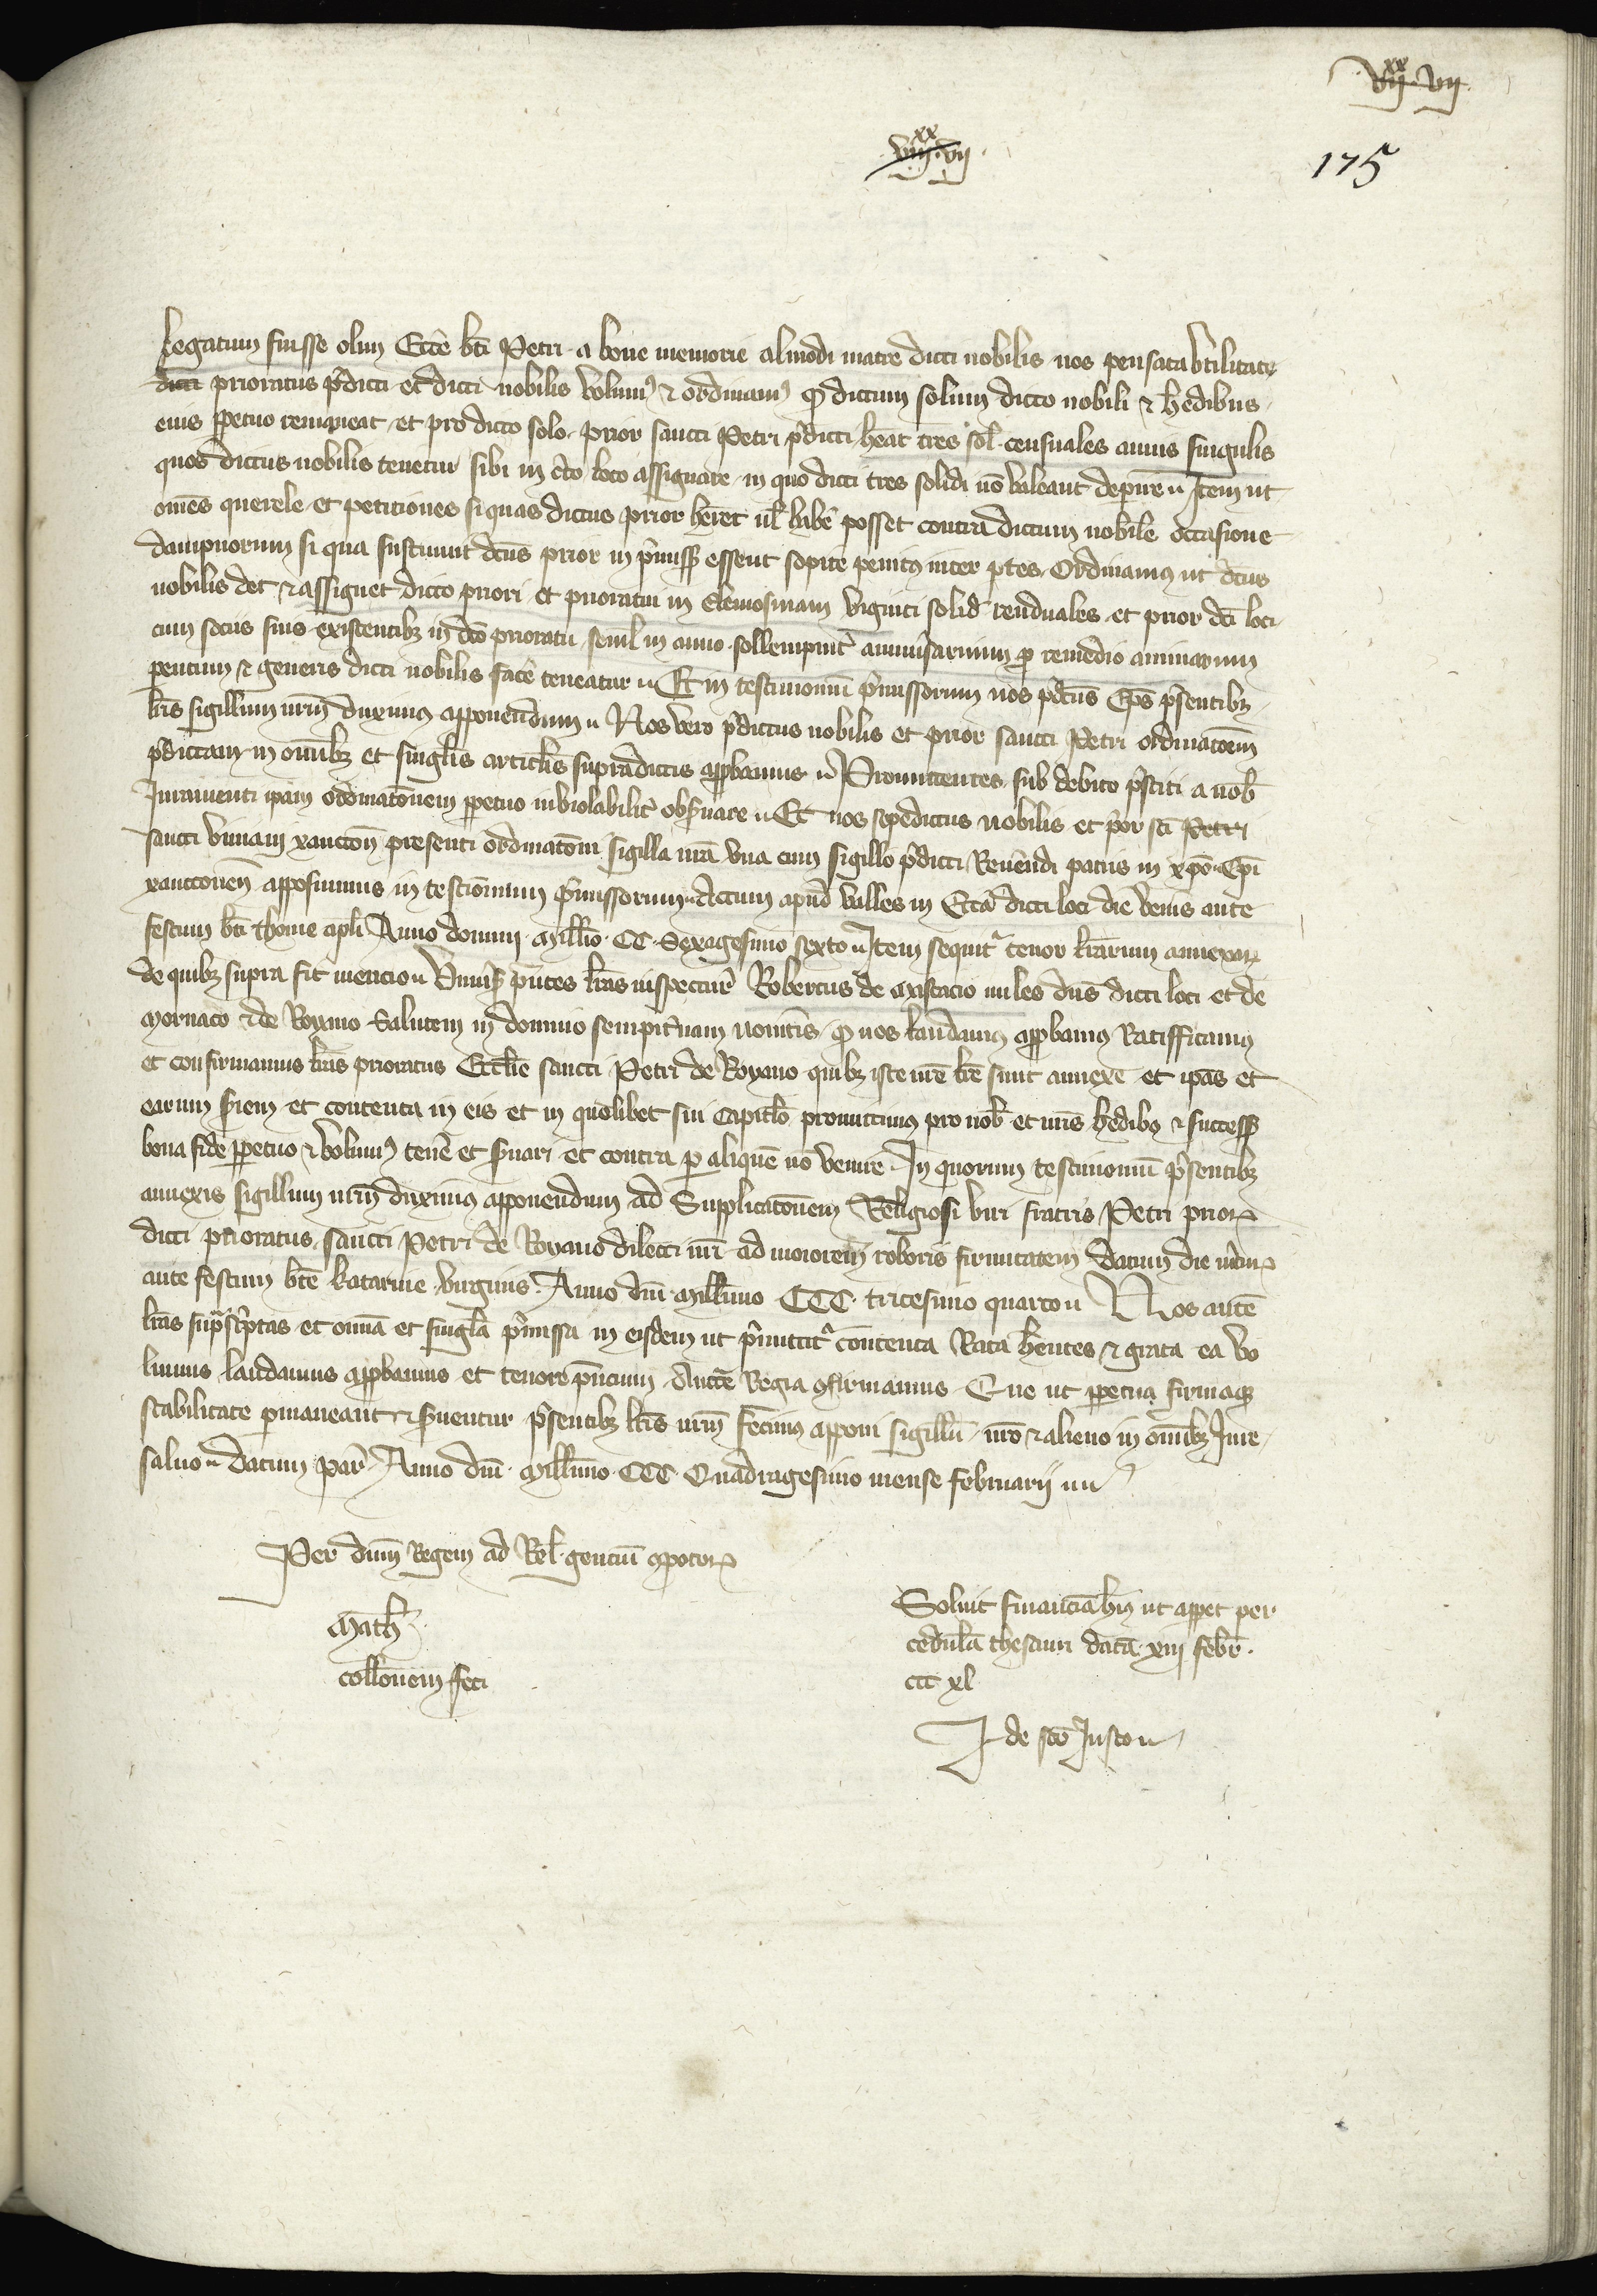 xx
vii vii
xx
viii vii
175
legatum fuisse olim Eccē btī Petri a bone memorie almodi matre dicti nobilis nos pensata utilitate
dicti prioratus p̄dicti et dicti nobilis volumꝰ ⁊ ordinamꝰ ꝙ dictum solum dicto nobili ⁊ hedibus
eius ꝑpetuo remaneat et pro dicto solo prior sancti Petri p̄dicti hēat tres sol̄ censuales annis singulis
quos dictus nobilis tenetur sibi in cto loco assignare in quo dicti tres solidi nō valeant deperire Item ut
omēs querele et petitiones si quas dictus prior hēret ul̄ habē posset contra dictum nobilē occasione
dampnorum si qua sustinuit dcūs prior in p̄missꝭ essent sopite penitꝰ inter ptes Ordinamus ut dcūs
nobilis det ⁊ assignet dicto priori et prioratui in elemosinam viginti solid̄ renduales et prior dcī loci
cum sociis suis existentibꝫ in dcō prioratu semꝉ in anno sollempnit̄ anniūsarium ꝓ remedio animarum
pentum ⁊ generis dicti nobilis facē teneatur Et in testimoniū p̄missorum nos p̄dcūs Epūs p̄sentibꝫ
lrīs sigillum nrm̄ duximꝰ apponendum Nos vero p̄dictus nobilis et prior sancti Petri ordinatōem
p̄dictam in omībꝫ et singlīs articlīs supradictis approbamus Promittentes sub debito p̄stiti a nob̄
Juramenti ip̄am ordinatōnem ꝑpetuo inviolabilit̄ obs̄uare Et nos sepedictus nobilis et p̄or scī Petri
sancti viuiani xanctōn presenti ordinatōni sigilla nr̄a vna cum sigillo p̄dicti Reuēndi patris in xpō Epī
xanctonen̄ apposuimus in testiōnium p̄missorum Actum apud valles in Eccā dicti loci die venis ante
festum btī thome apli Anno domini Millīo CC Sexagesimo sexto Item sequit̄ tenor lrārum annexaꝝ
de quibꝫ supra fit mencio Vniūsꝭ pn̄tes lrās inspecturꝭ Robertus de Mastacio miles dn̄s dicti loci et de
Mornaco ⁊ de Royano Salutem in domino sempit̄nam noūitis ꝙ nos laudamꝰ approbamꝰ Ratifficamꝰ
et confirmamus lrās prioratus Ecclīe sancti Petri de Royano quibꝫ iste nrē lrē sunt annexe et ip̄as et
earum s̄iem et contenta in eis et in quolibet sui capitlō promittimꝰ pro nob̄ et nrīs hedibꝫ ⁊ successꝭ
bona fide ꝑpetuo ⁊ volumꝰ tenē et s̄uari et contra ꝑ aliquē nō venire In quorum testimoniū p̄sentibꝫ
annexis sigillum nrm̄ duximus apponendum ad Supplicatōnem Religiosi viri fratris Petri prioꝝ
dicti prioratus sancti Petri de Royano dilecti nrī ad maiorem roboris firmitatem Datum die m̄cuꝝ
ante festum btē Katarine virginis Anno dn̄i Millīmo CCC tricesimo quarto Nos autē
lrās sup̄sc̄ptas et omīa et singlā p̄missa in eisdem ut p̄mittit̄ contenta Rata hn̄tes ⁊ grata ea vo
lumus laudamus approbamus et tenore pn̄cium Auctē Regia ꝯfirmamus Que ut ꝑpetua firmaqꝫ
stabilitate ꝑmaneant ⁊ s̄uentur p̄sentibꝫ lrīs nrm̄ fecimꝰ apponi sigillū nrō ⁊ alieno in omībꝫ Jure
saluo Datum par̄ Anno dn̄i Millīmo CCC Quadragesimo mense Februarij
Per dn̄m Regem ad Rel̄ genciū compotoꝝ
Math̄
collōnem feci
Soluit financiā hīꝰ ut appet per
cedulā thesauri datā xiij febr̄
ccc xl
J de scō Justo